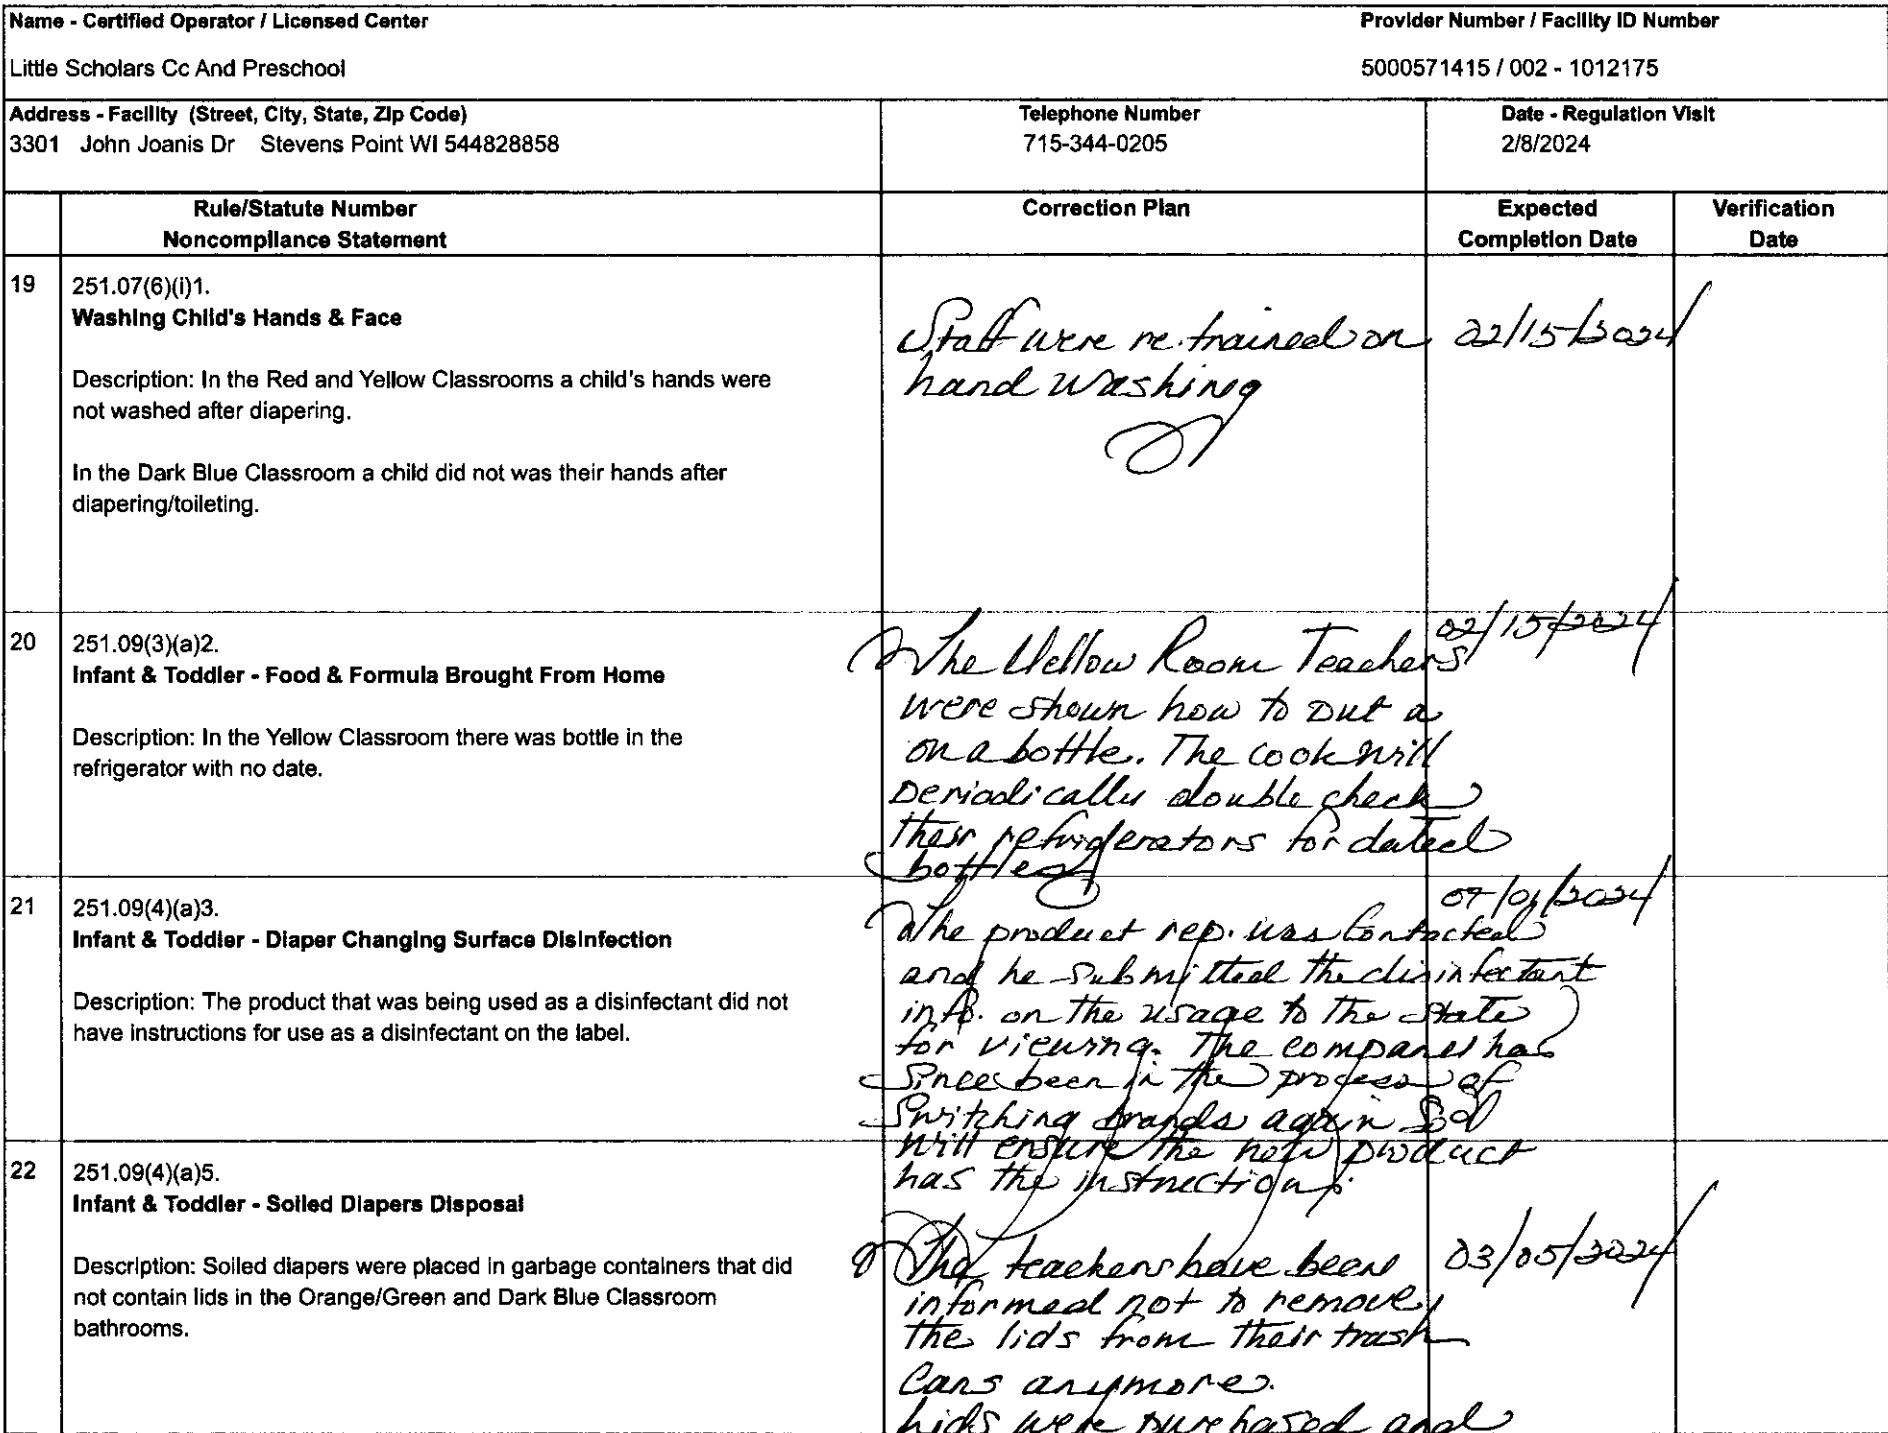 Name - Certified Operator / Licensed Center
Provider Number / Facility ID Number
Little Scholars Cc And Preschool
5000571415 / 002 - 1012175
Address - Facility (Street, City, State, Zip Code)
Telephone Number
Date - Regulation Visit
3301 John Joanis Dr Stevens Point WI 544828858
715-344-0205
2/8/2024
Rule/Statute Number
Noncompliance Statement
Correction Plan
Expected
Completion Date
Verification
Date
19
251.07(6)(i)1.
Washing Child's Hands & Face
Description: In the Red and Yellow Classrooms a child's hands were
not washed after diapering.
In the Dark Blue Classroom a child did not was their hands after
diapering/toileting.
Staff were re-trained on
hand washing
02/15/2024
20
251.09(3)(a)2.
Infant & Toddler - Food & Formula Brought From Home
Description: In the Yellow Classroom there was bottle in the
refrigerator with no date.
The Yellow Room Teachers
were shown how to put a
on a bottle. The cook will
periodically double check
their refrigerators for dated
bottles
02/15/2024
21
251.09(4)(a)3.
Infant & Toddler - Diaper Changing Surface Disinfection
Description: The product that was being used as a disinfectant did not
have instructions for use as a disinfectant on the label.
The product rep. was contacted
and he submitted the disinfectant
info. on the usage to the State
for viewing. The company has
since been in the process of
switching brands again
will ensure the new product
has the instructions.
/2024
22
251.09(4)(a)5.
Infant & Toddler - Soiled Diapers Disposal
Description: Soiled diapers were placed in garbage containers that did
not contain lids in the Orange/Green and Dark Blue Classroom
bathrooms.
The teachers have been
informed not to remove
the lids from their trash
cans anymore.
Lids were purchased and
03/05/2024